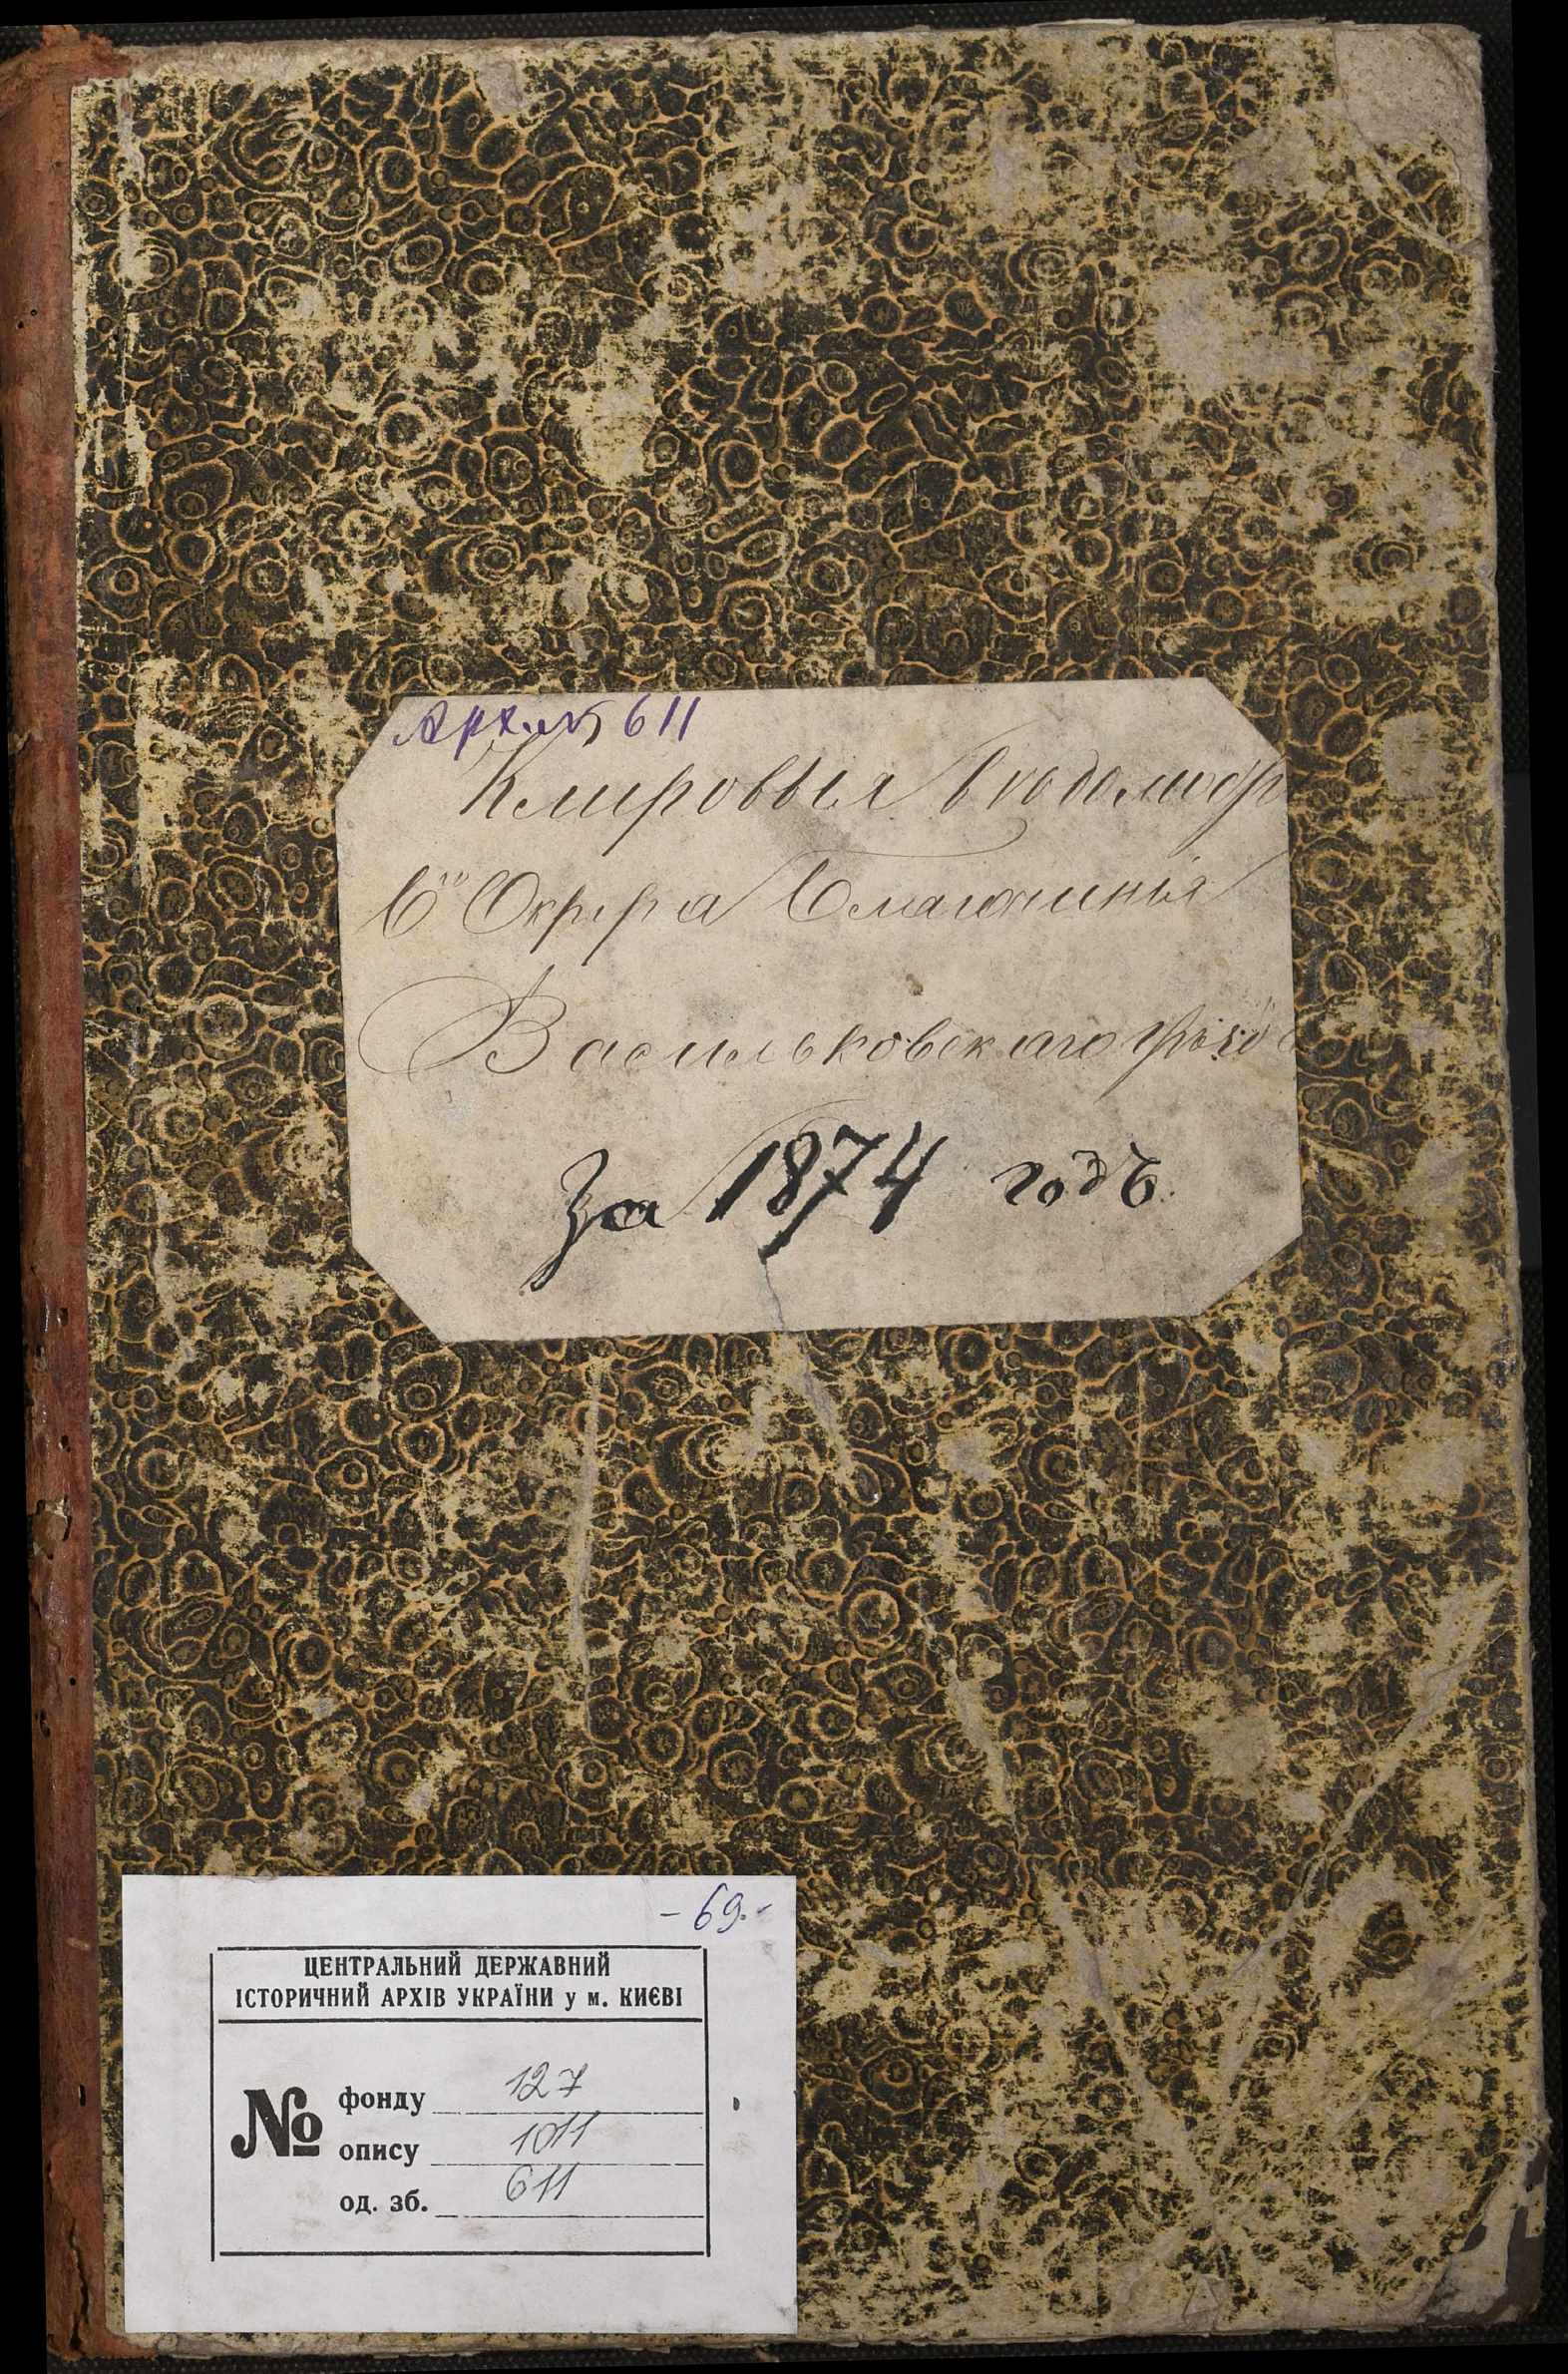 Арх. № 611
Клировыя Вѣдомости
6го Округа Благочинія
Васильковскаго уѣзда
За 1874 годъ.
- 69. -
ЦЕНТРАЛЬНИЙ ДЕРЖАВНИЙ
ІСТОРИЧНИЙ АРХІВ УКРАЇНИ у м. КИЄВІ
№ фонду 127
опису 1011
од. зб. 611